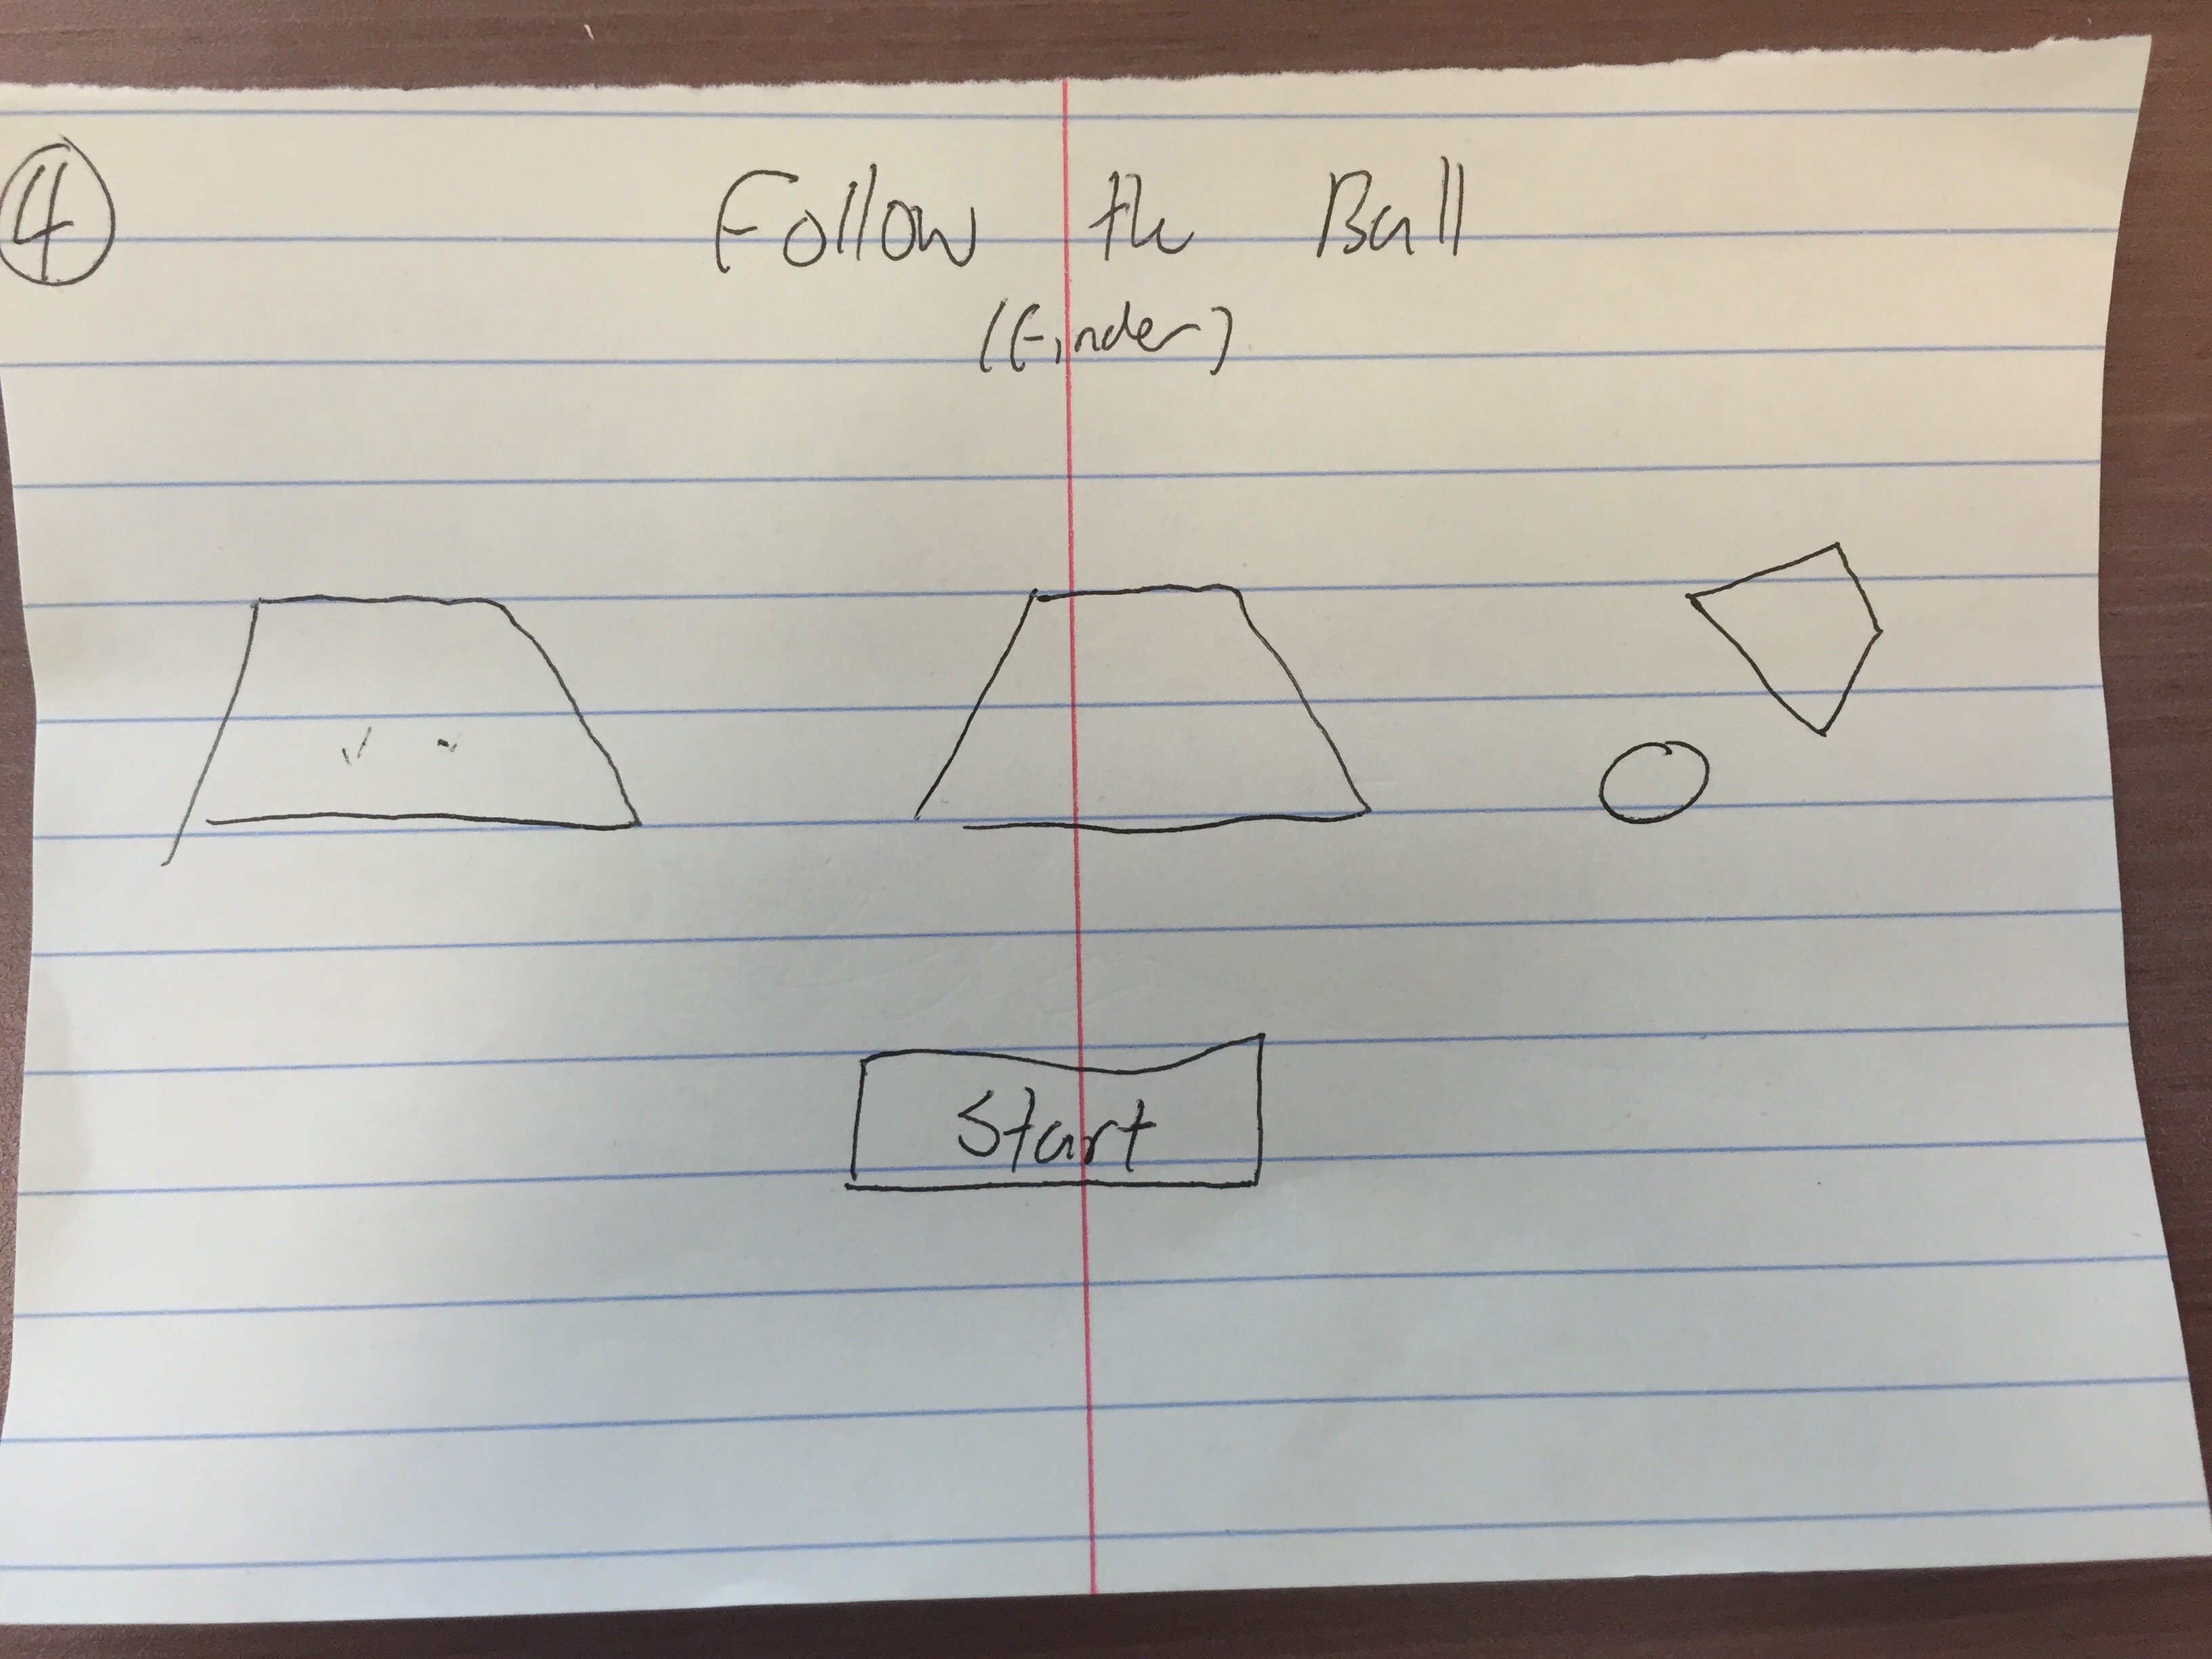 4
Follow the Ball
(Finder)
Start